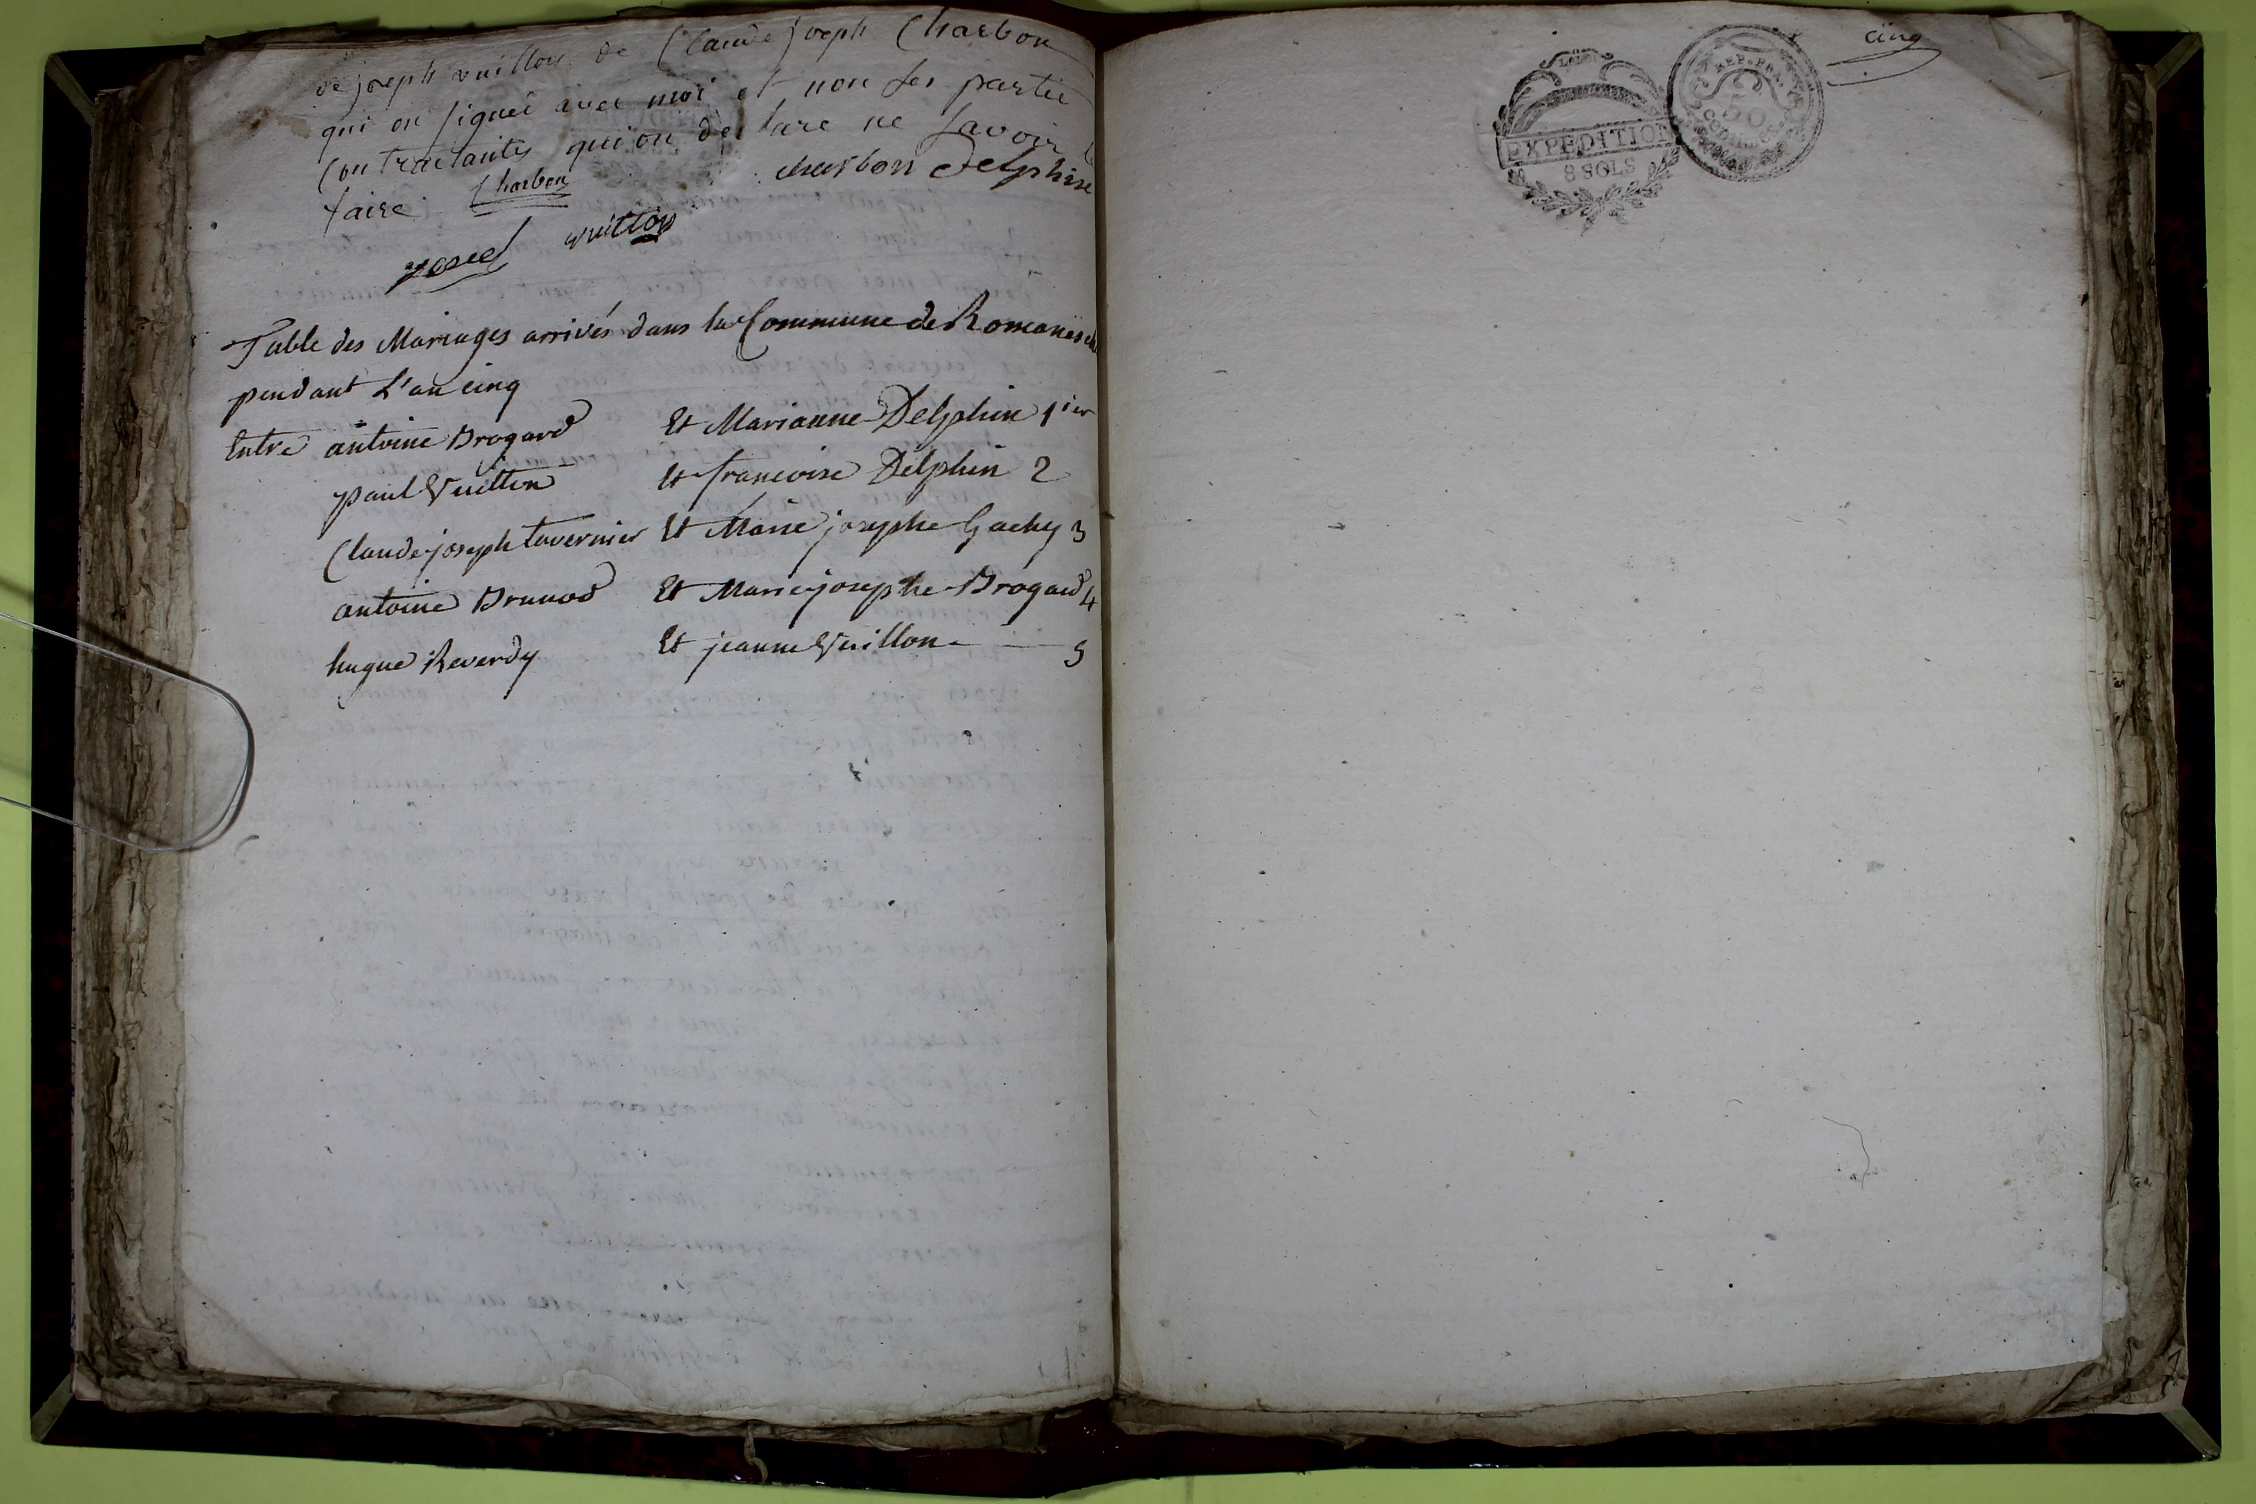 de joseph vuillon de Claude joseph Charbon
qui on signée avec moi et non les partie
Contractantes qui on declare ne savoir le
faire. Charbon charbon Delphin
vuitton
Table des Mariages arrivés dans la Commune de Romanesche
pendant L'an cinq
Entre antoine Brogard Et Marianne Delphin 1ier
paul Vuitton Et francoise Delphin 2
Claude joseph tavernier Et Marie josephe Gachy 3
antoine Brunod Et Marie josephe Brogard 4
hugue Reverdy Et jeanne Vuillon 5
cinq
EXPEDITION
8 SOLS
REP. FRA.
50
CENTIMES